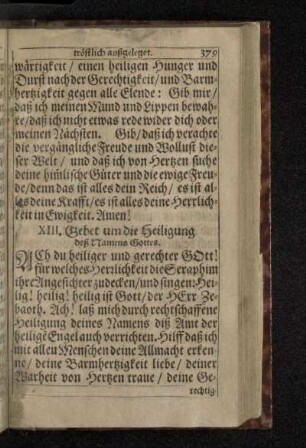 tröstlich außgeleget. 379
wärtigkeit / einen heiligen Hunger und
Durst nach der Gerechtigkeit / und Barm-
hertzigkeit gegen alle Elende: Gib mir /
daß ich meinen Mund und Lippen bewah-
re / daß ich nicht etwas rede wider dich oder
meinen Nächsten. Gib / daß ich verachte
die vergängliche Freude und Wollust die-
ser Welt / und daß ich von Hertzen suche
deine him̄lische Güter und die ewige Freu-
de / denn das ist alles dein Reich / es ist al-
les deine Krafft / es ist alles deine Herrlich-
keit in Ewigkeit. Amen!
XIII. Gebet um die Heiligung
deß Namens Gottes.
ACh du heiliger und gerechter GOtt!
für welches Herrlichkeit die Seraphim
ihre Angesichter zudecken / und singen: Hei-
lig! heilig! heilig ist Gott / der HErr Ze-
baoth. Ach! laß mich durch rechtschaffene
Heiligung deines Namens diß Amt der
heiligē Engel auch verrichten. Hilff daß ich
mit allen Menschen deine Allmacht erken-
ne / deine Barmhertzigkeit liebe / deiner
Warheit von Hertzen traue / deine Ge-
rechtig-